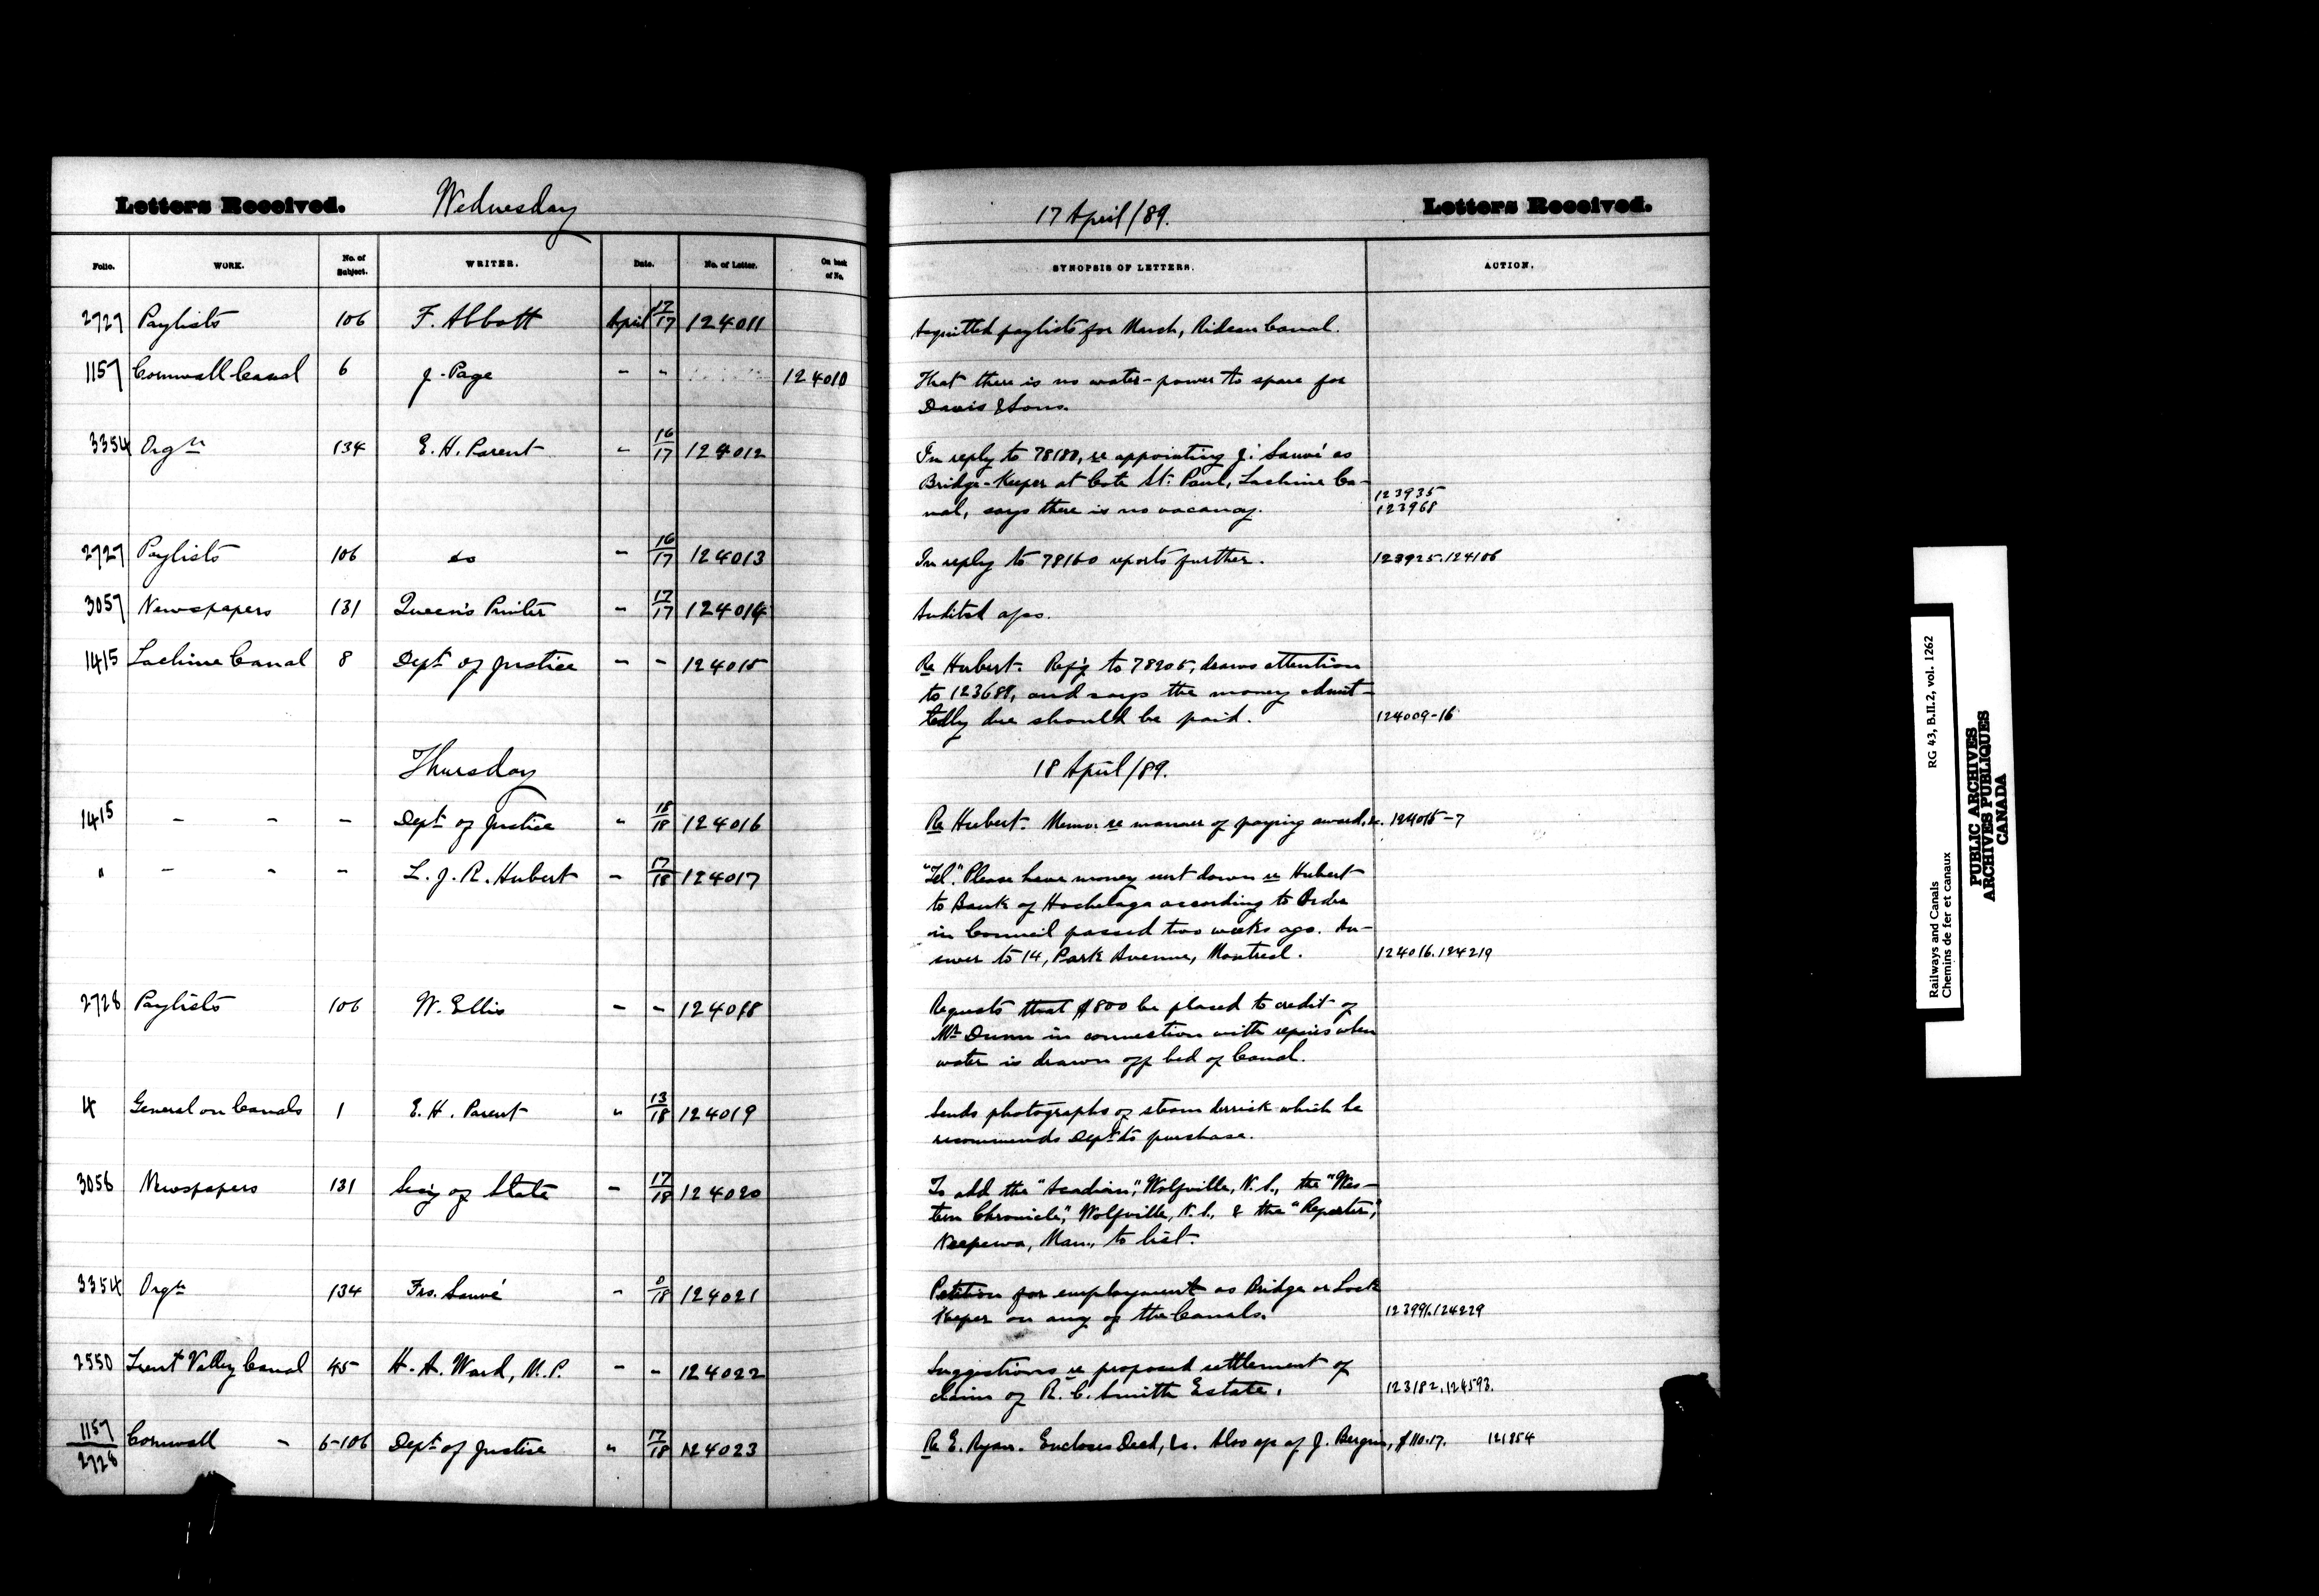 Letters Received. Wednesday 17 April/89. Letters Received.
Folio. WORK. No. of Subject. WRITER. Date. No. of Letter. On back of No. SYNOPSIS OF LETTERS. ACTION.
2727 Paylists 106 F. Abbott April 17/17 124011 Acquitted paylists for March, Rideau Canal.
1157 Cornwall Canal 6 J. Page - - 124010 That there is no water-power to spare for
Davis & Sons.
3354 Orgn 134 E. H. Parent - 16/17 124012 In reply to 78180, re appointing J. Sauvé as
Bridge-Keeper at Cote St. Paul, Lachine Ca-
nal, says there is no vacancy. 123935
123968
2727 Paylists 106 do - 16/17 124013 In reply to 78160 reports further. 123925.124106
3057 Newspapers 131 Queen's Printer - 17/17 124014 Audited a/cs.
1415 Lachine Canal 8 Dept of Justice - - 124015 Re Hubert. Ref'g to 78205, draws attention
to 123688, and says the money admit-
tedly due should be paid. 124009-16
Thursday 18 April/89.
1415 - - - Dept of Justice " 18/18 124016 Re Hubert. Memo. re manner of paying award, &c. 124015-7
" - " - L. J. R. Hubert - 17/18 124017 "Tel." Please have money sent down re Hubert
to Bank of Hochelaga according to Order
in Council passed two weeks ago. An-
swer to 14, Park Avenue, Montreal. 124016.124219
2728 Paylists 106 W. Ellis - - 124018 Requests that $800 be placed to credit of
Mr Dunn in connection with repairs when
water is drawn off bed of Canal.
4 General on Canals 1 E. H. Parent " 13/18 124019 Sends photographs of steam derrick which he
recommends Dept to purchase.
3056 Newspapers 131 Sec'y of State - 17/18 124020 To add the "Acadian", Wolfville, N.S., the "Wes-
tern Chronicle", Wolfville, N.S., & the "Reporter",
Neepewa, Man., to list.
3354 Orgn 134 Frs. Sauvé - 0/18 124021 Petition for employment as Bridge or Lock
Keeper on any of the Canals. 123991.124229
2550 Trent Valley Canal 45 H. A. Ward, M.P. - - 124022 Suggestions re proposed settlement of
claim of R. C. Smith Estate. 123182.124593.
1157/2728 Cornwall - 6-106 Dept of Justice " 17/18 124023 Re E. Ryan. Encloses Deed, &c. Also a/c of J. Bergin, $110.17. 121854
Railways and Canals RG 43, B.II.2, vol. 1262
Chemins de fer et canaux
PUBLIC ARCHIVES
ARCHIVES PUBLIQUES
CANADA